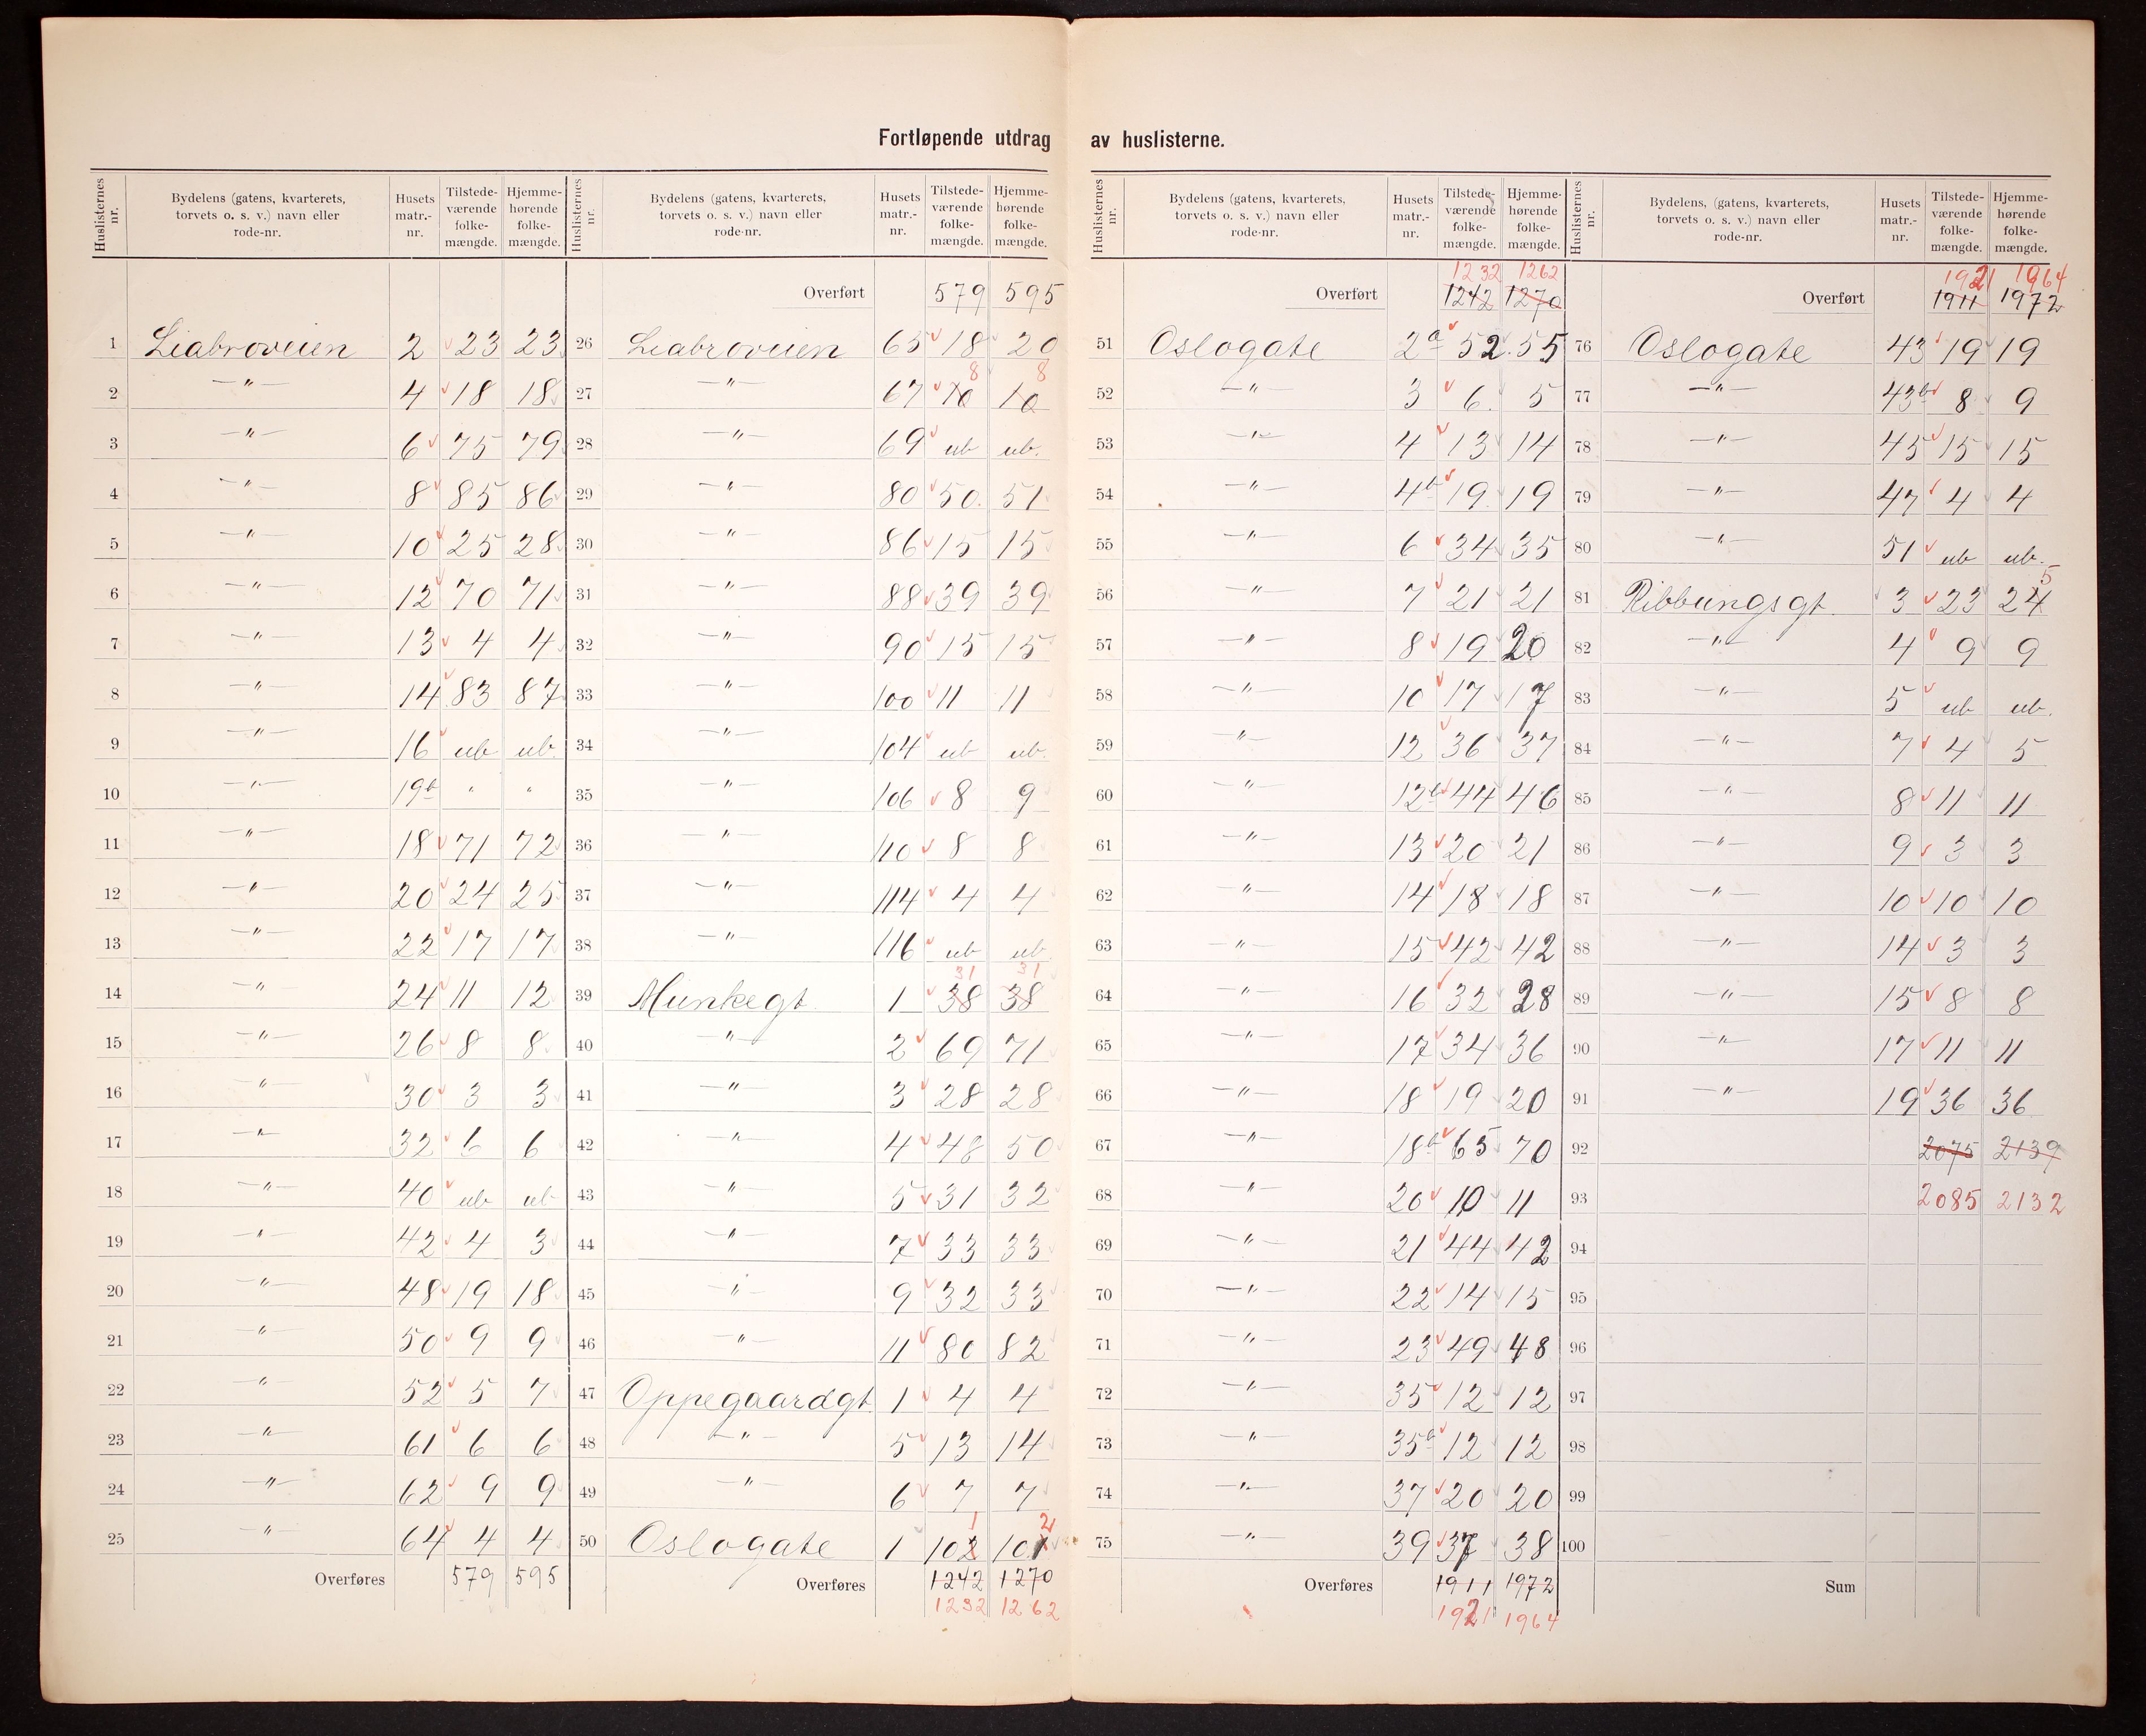 Fortløpende utdrag av huslisterne.
Huslisternes nr. Bydelens (gatens, kvarterets, torvets o. s. v.) navn eller rode-nr. Husets matr.-nr. Tilstede-værende folke-mængde. Hjemme-hørende folke-mængde.
1 Liabroveien 2 23 23
2 —"— 4 18 18
3 —"— 6 75 79
4 —"— 8 85 86
5 —"— 10 25 28
6 —"— 12 70 71
7 —"— 13 4 4
8 —"— 14 83 87
9 —"— 16 ub ub.
10 —"— 19b " "
11 —"— 18 71 72
12 —"— 20 24 25
13 —"— 22 17 17
14 —"— 24 11 12
15 —"— 26 8 8
16 —"— 30 3 3
17 —"— 32 6 6
18 —"— 40 ub ub
19 —"— 42 4 3
20 —"— 48 19 18
21 —"— 50 9 9
22 —"— 52 5 7
23 —"— 61 6 6
24 —"— 62 9 9
25 —"— 64 4 4
Overføres 579 595
Huslisternes nr. Bydelens (gatens, kvarterets, torvets o. s. v.) navn eller rode-nr. Husets matr.-nr. Tilstede-værende folke-mængde. Hjemme-hørende folke-mængde.
Overført 579 595
26 Liabroveien 65 18 20
8 8
27 —"— 67 10 10
28 —"— 69 ub ub.
29 —"— 80 50 51
30 —"— 86 15 15
31 —"— 88 39 39
32 —"— 90 15 15
33 —"— 100 11 11
34 —"— 104 ub ub.
35 —"— 106 8 9
36 —"— 110 8 8
37 —"— 114 4 4
38 —"— 116 ub ub
31 31
39 Munkegt. 1 38 38
40 —"— 2 69 71
41 —"— 3 28 28
42 —"— 4 48 50
43 —"— 5 31 32
44 —"— 7 33 33
45 —"— 9 32 33
46 —"— 11 80 82
47 Oppegaardgt. 1 4 4
48 —"— 5 13 14
49 —"— 6 7 7
1 2
50 Oslogate 1 102 101
Overføres 1242 1270
1232 1262
Huslisternes nr. Bydelens (gatens, kvarterets, torvets o. s. v.) navn eller rode-nr. Husets matr.-nr. Tilstede-værende folke-mængde. Hjemme-hørende folke-mængde.
1232 1262
Overført 1242 1270
51 Oslogate 2a 52 55
52 —"— 3 6 5
53 —"— 4 13 14
54 —"— 4b 19 19
55 —"— 6 34 35
56 —"— 7 21 21
57 —"— 8 19 20
58 —"— 10 17 17
59 —"— 12 36 37
60 —"— 12b 44 46
61 —"— 13 20 21
62 —"— 14 18 18
63 —"— 15 42 42
64 —"— 16 32 28
65 —"— 17 34 36
66 —"— 18 19 20
67 —"— 18b 65 70
68 —"— 20 10 11
69 —"— 21 44 42
70 —"— 22 14 15
71 —"— 23 49 48
72 —"— 35 12 12
73 —"— 35b 12 12
74 —"— 37 20 20
75 —"— 39 37 38
Overføres 1911 1972
1921 1964
Huslisternes nr. Bydelens, (gatens, kvarterets, torvets o. s. v.) navn eller rode-nr. Husets matr.-nr. Tilstede-værende folke-mængde. Hjemme-hørende folke-mængde.
1921 1964
Overført 1911 1972
76 Oslogate 43 19 19
77 —"— 43b 8 9
78 —"— 45 15 15
79 —"— 47 4 4
80 —"— 51 ub ub.
5
81 Ribbungsgt. 3 23 24
82 —"— 4 9 9
83 —"— 5 ub ub.
84 —"— 7 4 5
85 —"— 8 11 11
86 —"— 9 3 3
87 —"— 10 10 10
88 —"— 14 3 3
89 —"— 15 8 8
90 —"— 17 11 11
91 —"— 19 36 36
92 2075 2139
93 2085 2132
94
95
96
97
98
99
100
Sum